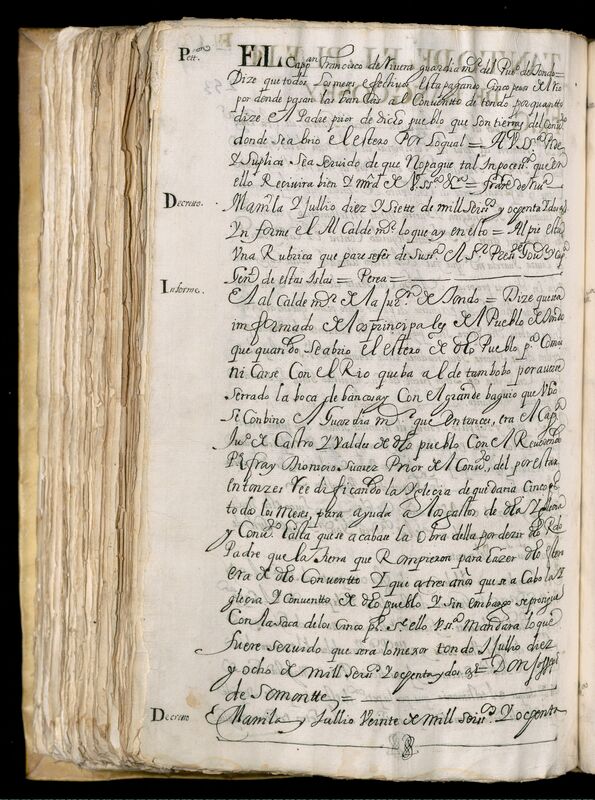 Pett.on
EL Cappan Francisco de Rivera guardia mr. del Pueo. de tondo=
Dize que todos los meses echivos esta pagano Cinco pesos de el Rio
por donde pasan las bancas al Conventto de tondo por quantto
dize el Padre prior de dicho pueblo que son tierras del Convto.
donde se abrio el estero Por lo qual = A V. Ssa. Pide
Y Suplica sea servido de que No pague tal
ello Recivira bien Y mrd de V. Ssa. = franco. de
Decreto.
Manila Y Jullio diez Y Siette de mill seiss. y ochenta Y dos as
Ynforme el Al Calde mr. lo que ay en esto = Al pie esta
Una Rubrica que pareseser de Su Sa. el Sr. Press.te Govr. y Cap.
Genl. de estas Islas = Perea =
Informe.
El al Calde mr. de la juz.on de tondo = Dize que esta
imformado de los principales del Pueblo de tondo
que quando se abrio el estero de dho Pueblo pa. Comu
ni Carse Con el Rio que ba al de tambobo por averse
serrado la boca de bancosay Con el grande baguio que Ubo
Se Conbino el Guardia mr. que entonces era el Cap.
Juo. de Castro Y Valdes de dho pueblo Con el Reverendo
P.e fray Dionicio Suarez Prior del Convto. del por estar
entonzes Reedificando la Yglecia de que daria Cinco ps.
todos los meses, para ayuda a los gastos de dha Yglecia
y Convto. asta que se acabase la Obra della por dezir dho Rdo
Padre que la tierra que Rompieron para azer dho estero
era de dho Conventto Y que a tres años que se a Cabo la Y
glecia Y Conventto de dho pueblo Y sin embargo se prosigue
Con la paga de los Cinco ps. Sre. ello V. ssa. Mandara lo que
fuere servido que sera lo mexor tondo Y Jullio diez
y ocho de mill seiss. Y ochenta y dos as = Don Joseph
de Somontte =
Decreto
Manila y Jullio Veinte de mill seiss. Y ochenta